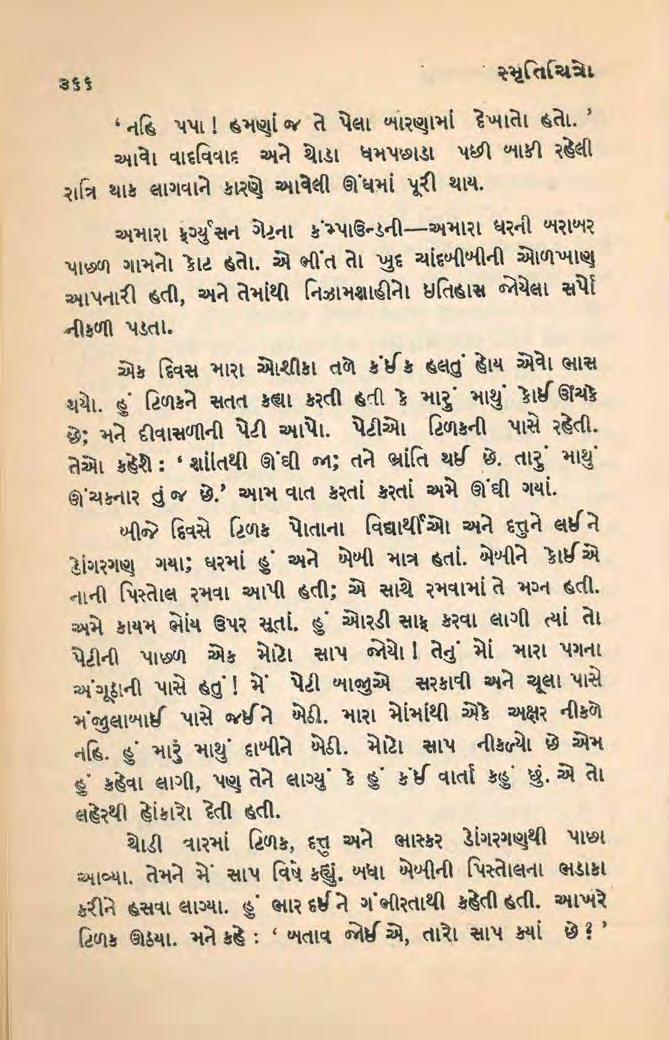 ૩૬૬
સ્મૃતિચિત્રો
‘નહિ પપા ! હમણાં જ તે પેલા બારણામાં દેખાતો હતો. ’
આવો વાદવિવાદ અને થોડા ધમપછાડા પછી બાકી રહેલી
રાત્રિ થાક લાગવાને કારણે આવેલી ઊંઘમાં પૂરી થાય.
અમારા ફર્ગ્યુસન ગેટના કંમ્પાઉન્ડની—અમારા ઘરની બરાબર
પાછળ ગામનો કોટ હતો. એ ભીંત તો ખુદ ચાંદબીબીની ઓળખાણ
આપનારી હતી, અને તેમાંથી નિઝામશાહીનો ઇતિહાસ જોયેલા સર્પો
નીકળી પડતા.
એક દિવસ મારા ઓશીકા તળે કંઈક હલતું હોય એવો ભાસ
થયો. હું ટિળકને સતત કહ્યા કરતી હતી કે મારું માથું કોઈ ઊંચકે
છે; મને દીવાસળીની પેટી આપો. પેટીઓ ટિળકની પાસે રહેતી.
તેઓ કહેશે : ‘ શાંતિથી ઊંઘી જા; તને ભ્રાંતિ થઈ છે. તારું માથું
ઊંચકનાર તું જ છે.’ આમ વાત કરતાં કરતાં અમે ઊંઘી ગયાં.
બીજે દિવસે ટિળક પોતાના વિદ્યાર્થીઓ અને દત્તુને લઈને
ડોંગરગણ ગયા; ઘરમાં હું અને બેબી માત્ર હતાં. બેબીને કોઈએ
નાની પિસ્તોલ રમવા આપી હતી; એ સાથે રમવામાં તે મગ્ન હતી.
અમે કાયમ ભોંય ઉપર સૂતાં. હું ઓરડી સાફ કરવા લાગી ત્યાં તો
પેટીની પાછળ એક મોટો સાપ જોયો ! તેનું મોં મારા પગના
અંગૂઠાની પાસે હતું ! મેં પેટી બાજુએ સરકાવી અને ચૂલા પાસે
મંજુલાબાઈ પાસે જઈને બેઠી. મારા મોંમાંથી એકે અક્ષર નીકળે
નહિ. હું મારું માથું દાબીને બેઠી. મોટો સાપ નીકળ્યો છે એમ
હું કહેવા લાગી, પણ તેને લાગ્યું કે હું કંઈ વાર્તા કહું છું. એ તો
લહેરથી હોંકારો દેતી હતી.
થોડી વારમાં ટિળક, દત્તુ અને ભાસ્કર ડોંગરગણથી પાછા
આવ્યા. તેમને મેં સાપ વિષે કહ્યું. બધા બેબીની પિસ્તોલના ભડાકા
કરીને હસવા લાગ્યા. હું ભાર દઈને ગંભીરતાથી કહેતી હતી. આખરે
ટિળક ઊઠ્યા. મને કહે : ‘ બતાવ જોઈએ, તારો સાપ ક્યાં છે ? ’